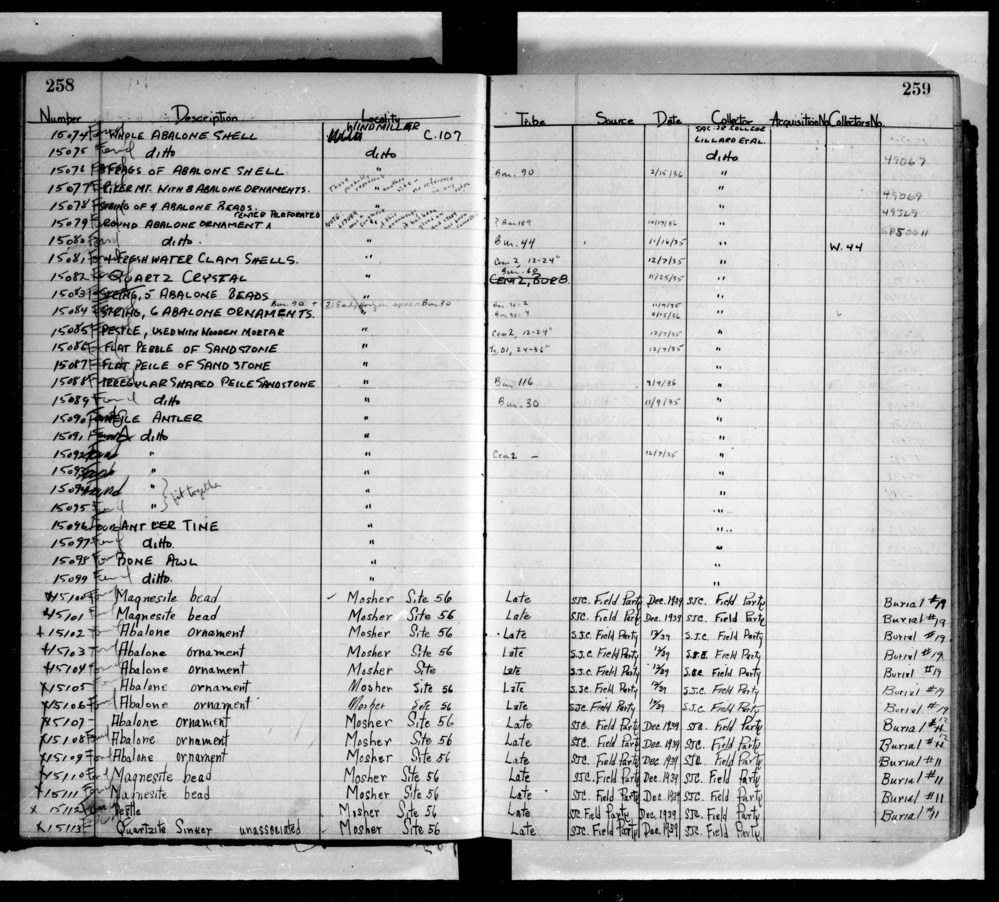 258
259
Number Description Locality Tribe Source Date Collector Acquisition No. Collectors No.
15074 Found WHOLE ABALONE SHELL WINDMILLER C.107 SAC. JR COLLEGE LILLARD ET AL.
15075 Found ditto ditto ditto 49067
15076 FRAGS OF ABALONE SHELL " Bur. 90 2/15/36 "
15077 WITH 8 ABALONE ORNAMENTS. " 49069
15078 STRING OF 4 ABALONE BEADS " 49329
15079 ROUND ABALONE ORNAMENT CENTER PERFORATED ? Bur 189 10/17/36 "
15080 Found ditto. " Bur. 44 11/16/35 " W. 44
15081 4 FRESH WATER CLAM SHELLS. " Cem 2 12-24" 12/7/35 "
15082 QUARTZ CRYSTAL " Bur. 60 11/25/35 "
15083 STRING, 5 ABALONE BEADS "
15084 STRING, 6 ABALONE ORNAMENTS. " 2/15/36 "
15085 PESTLE, USED WITH WOODEN MORTAR " Cem 2, 12-24" 12/7/35 "
15086 FLAT PEBBLE OF SANDSTONE " 24-36" 12/7/35 "
15087 FLAT PEILE OF SAND STONE " "
15088 IRREGULAR SHAPED PEILE SANDSTONE " Bur 116 9/4/36 "
15089 Found ditto " Bur. 30 11/9/35 "
15090 ANTLER " "
15091 ditto " "
15092 Found " " Cem 2 — 12/7/35 "
15093 " " "
15094 Found " } fit together " "
15095 Found " } " "
15096 Found ANTLER TINE " "
15097 Found ditto. " "
15098 BONE AWL " "
15099 Found ditto. " "
x15100 Found Magnesite bead ✓ Mosher Site 56 Late SJC. Field Party Dec. 1939 SJC. Field Party Burial #19
x15101 Found Magnesite bead Mosher Site 56 Late SJC. Field Party Dec. 1939 SJC. Field Party Burial #19
x15102 Abalone ornament Mosher Site 56 Late S.J.C. Field Party 12/39 S.J.C. Field Party Burial #19
x15103 Found Abalone ornament Mosher Site 56 Late S.J.C. Field Party 12/39 S.J.C. Field Party Burial #19
x15104 Found Abalone ornament Mosher Site Late S.J.C. Field Party 12/39 S.J.C. Field Party Burial #19
x15105 Abalone ornament Mosher Site 56 Late S.J.C. Field Party 12/39 S.J.C. Field Party Burial #19
x15106 Found Abalone ornament Mosher Site 56 Late SJC. Field Party 12/39 S.J.C. Field Party Burial #19
x15107 Abalone ornament Mosher Site 56 Late SJC. Field Party Dec. 1939 SJC. Field Party Burial #12
x15108 Found Abalone ornament Mosher Site 56 Late SJC. Field Party Dec. 1939 SJC. Field Party Burial #12
x15109 Found Abalone ornament Mosher Site 56 Late SJC. Field Party Dec. 1939 SJC. Field Party Burial #11
x15110 Found Magnesite bead Mosher Site 56 Late SJC. Field Party Dec. 1939 SJC. Field Party Burial #11
x15111 Found Magnesite bead Mosher Site 56 Late SJC. Field Party Dec. 1939 SJC. Field Party Burial #11
x 15112 Pestle Mosher Site 56 Late SJC. Field Party Dec. 1939 SJC. Field Party Burial #11
x15113 Quartzite Sinker unassociated Mosher Site 56 Late SJC. Field Party Dec. 1939 SJC. Field Party